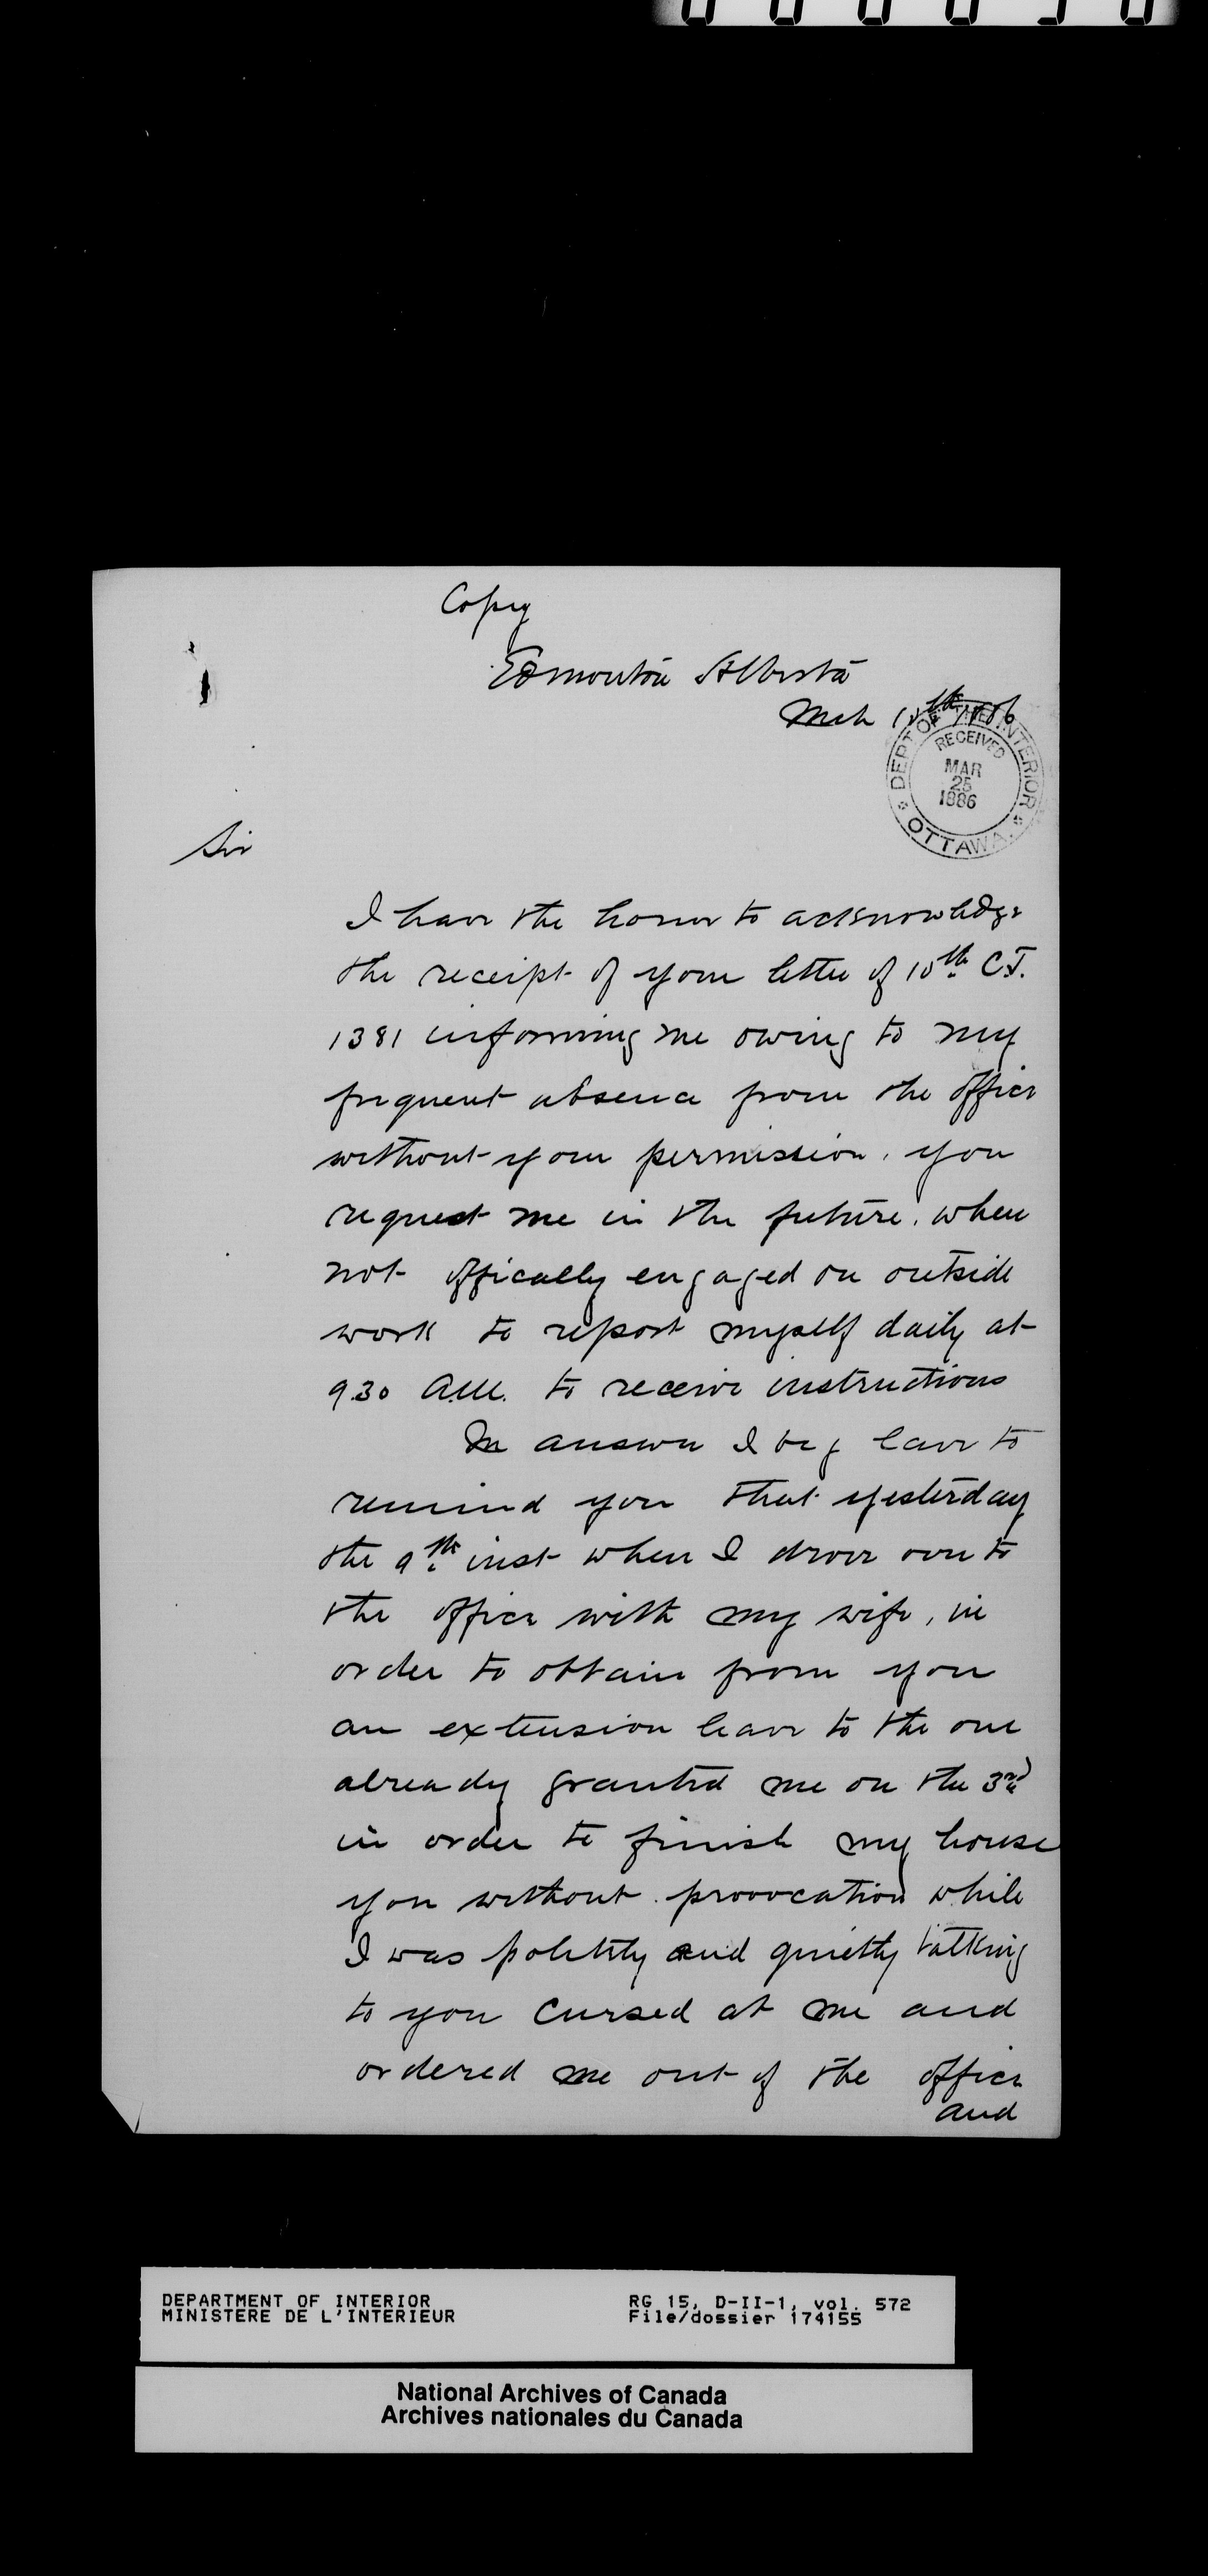 Copy
Edmonton Alberta
Mch 10th 1886
DEPT OF THE INTERIOR
RECEIVED
MAR
25
1886
OTTAWA.
Sir
I have the honor to acknowledge
the receipt of your letter of 10th C.T.
1381 informing me owing to my
frequent absence from the office
without your permission, you
request me in the future, when
not offically engaged on outside
work to report myself daily at
9.30 A.M. to receive instructions
In answer I beg leave to
remind you that yesterday
the 9th inst when I drove over to
the office with my wife, in
order to obtain from you
an extension leave to the one
already granted me on the 3rd
in order to finish my house
you without provocation while
I was politely and quietly talking
to you cursed at me and
ordered me out of the office
and
DEPARTMENT OF INTERIOR
MINISTERE DE L'INTERIEUR
RG 15, D-II-1, vol. 572
File/dossier 174155
National Archives of Canada
Archives nationales du Canada